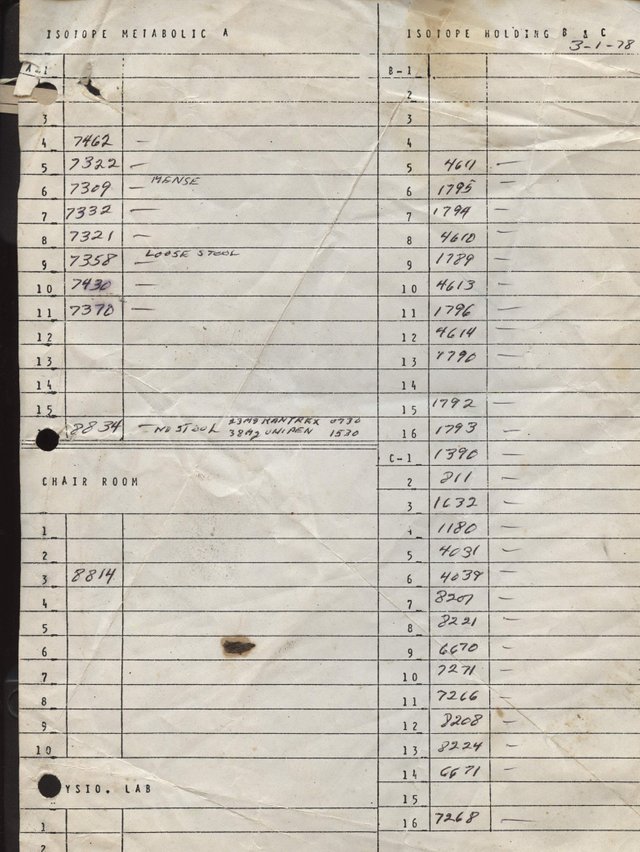 ISOTOPE METABOLIC A
A-1
3
4 7462 —
5 7322 —
6 7309 — MENSE
7 7332 —
8 7321 —
9 7358 — LOOSE STOOL
10 7430 —
11 7370 —
12
13
14
15
8834 — NO STOOL 23MG KANTREX 0730
38MG UNIPEN 1530
CHAIR ROOM
1
2
3 8814
4
5
6
7
8
9
10
YSIO. LAB
1
2
ISOTOPE HOLDING B & C
3-1-78
B-1
2
3
4
5 4611 —
6 1795 —
7 1794 —
8 4610 —
9 1789 —
10 4613 —
11 1796 —
12 4614 —
13 1790 —
14
15 1792 —
16 1793 —
C-1 1390 —
2 811 —
3 1632 —
4 1180 —
5 4031 —
6 4039 —
7 8201 —
8 8221 —
9 6670 —
10 7271 —
11 7266 —
12 8208 —
13 8224 —
14 6671 —
15
16 7268 —